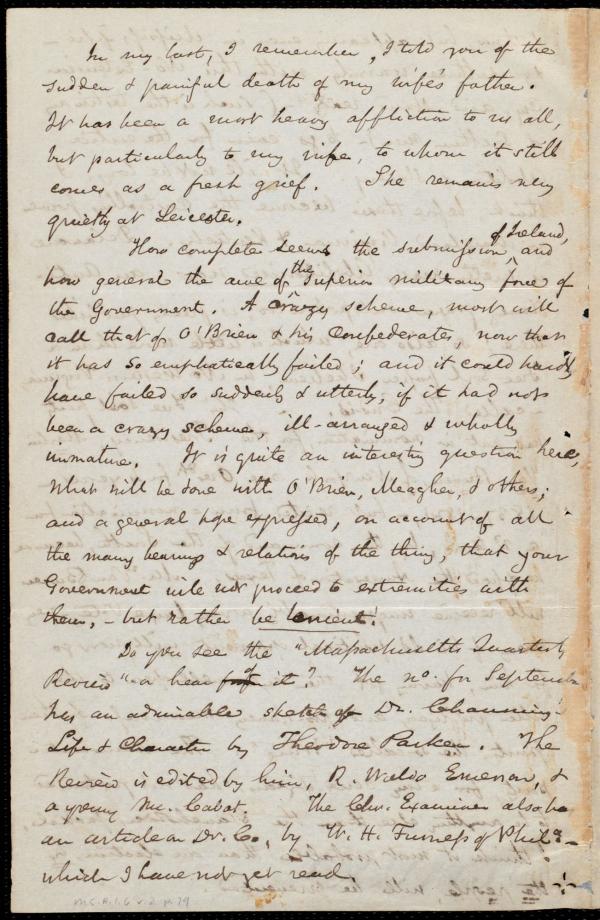 In my last, I remember, I told you of the
sudden & painful death of my wife's father.
It has been a most heavy affliction to us all,
but particularly to my wife, to whom it still
comes as a fresh grief. She remains very
quietly at Leicester.
of Ireland,
How complete seems the submission and
how general the awe of the superior military force of
the Government. A crazy scheme, most will
call that of O'Brien & his Confederates, now that
it has so emphatically failed; and it could hardly
have failed so suddenly & utterly, if it had not
been a crazy scheme, ill-arranged & wholly
immature. It is quite an interesting question here,
what will be done with O'Brien, Meagher, & others;
and a general hope expressed, on account of all
the many bearings & relations of the thing, that your
Government will not proceed to extremities with
them, - but rather be lenient.
Do you see the "Massachusetts Quarterly
Review" or hear of it? The no. for September
has an admirable sketch of Dr. Channing's
Life & Character by Theodore Parker. The
Review is edited by him, R. Waldo Emerson, &
a young Mr. Cabot. The Chr. Examiner also has
an article on Dr. C., by W. H. Furness of Phila -
which I have not yet read.
M.C.A.1.6 v.2 p.79